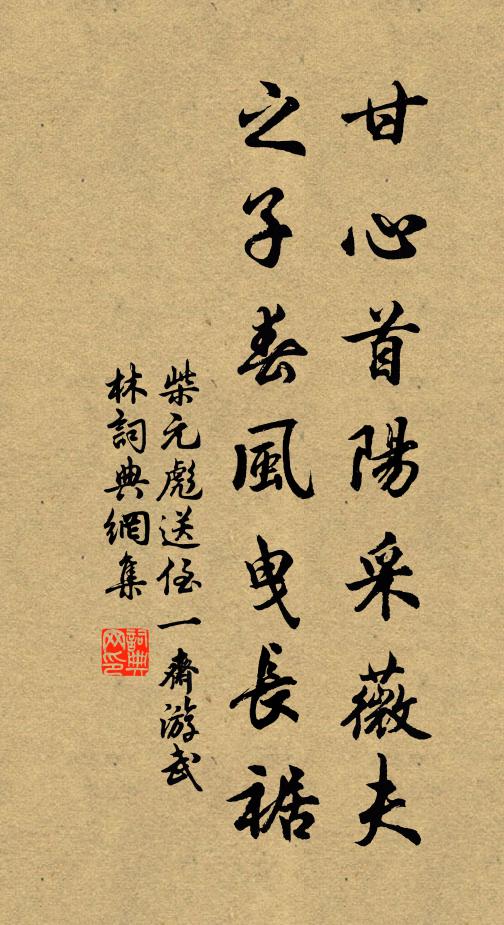 甘心首陽采薇夫
之子春風曳長裾
柴元彪送侄一齋游武
林詞典網集
詞典网印